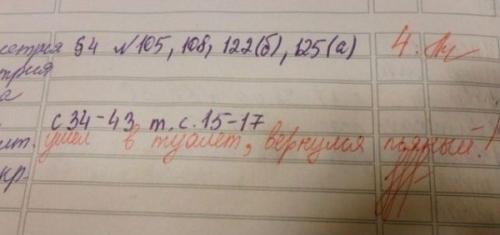 етрия §4 №105, 108, 122(б), 125(а) 4.
трия
а
с 34-43 т. с. 15-17
ушел в туалет, вернулся пьяный!
кр.